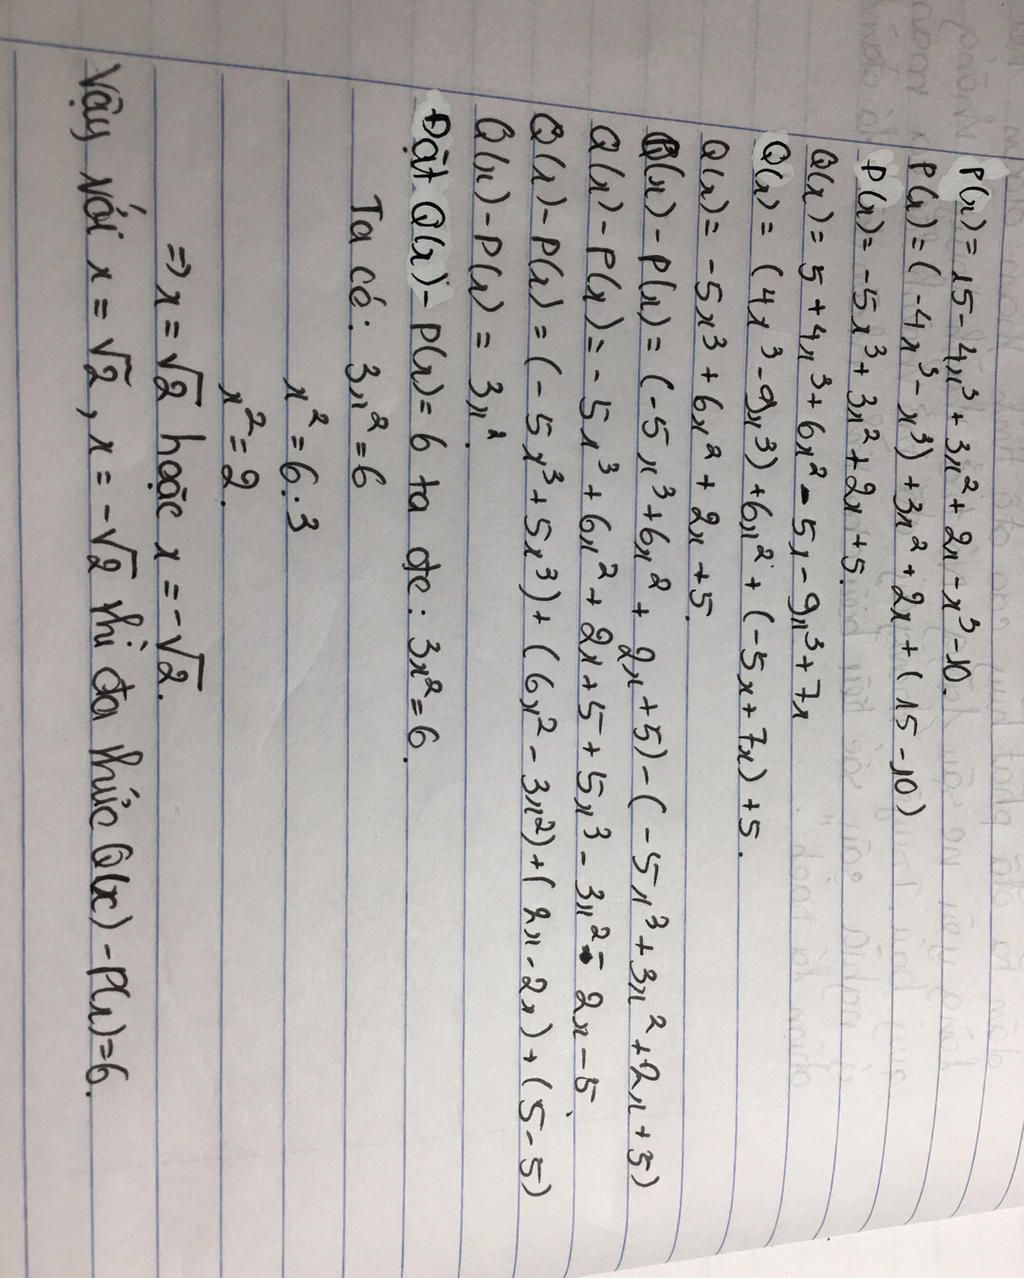 P(x) = 15 - 4x³ + 3x² + 2x - x³ - 10.
P(x) = (-4x³ - x³) + 3x² + 2x + (15 - 10)
P(x) = -5x³ + 3x² + 2x + 5.
Q(x) = 5 + 4x³ + 6x² - 5x - 9x³ + 7x
Q(x) = (4x³ - 9x³) + 6x² + (-5x + 7x) + 5.
Q(x) = -5x³ + 6x² + 2x + 5.
Q(x) - P(x) = (-5x³ + 6x² + 2x + 5) - (-5x³ + 3x² + 2x + 5)
Q(x) - P(x) = -5x³ + 6x² + 2x + 5 + 5x³ - 3x² - 2x - 5.
Q(x) - P(x) = (-5x³ + 5x³) + (6x² - 3x²) + (2x - 2x) + (5 - 5)
Q(x) - P(x) = 3x².
Đặt Q(x) - P(x) = 6 ta đc: 3x² = 6.
Ta có: 3x² = 6
x² = 6 : 3
x² = 2.
⇒ x = √2 hoặc x = -√2.
Vậy với x = √2, x = -√2 thì đa thức Q(x) - P(x) = 6.